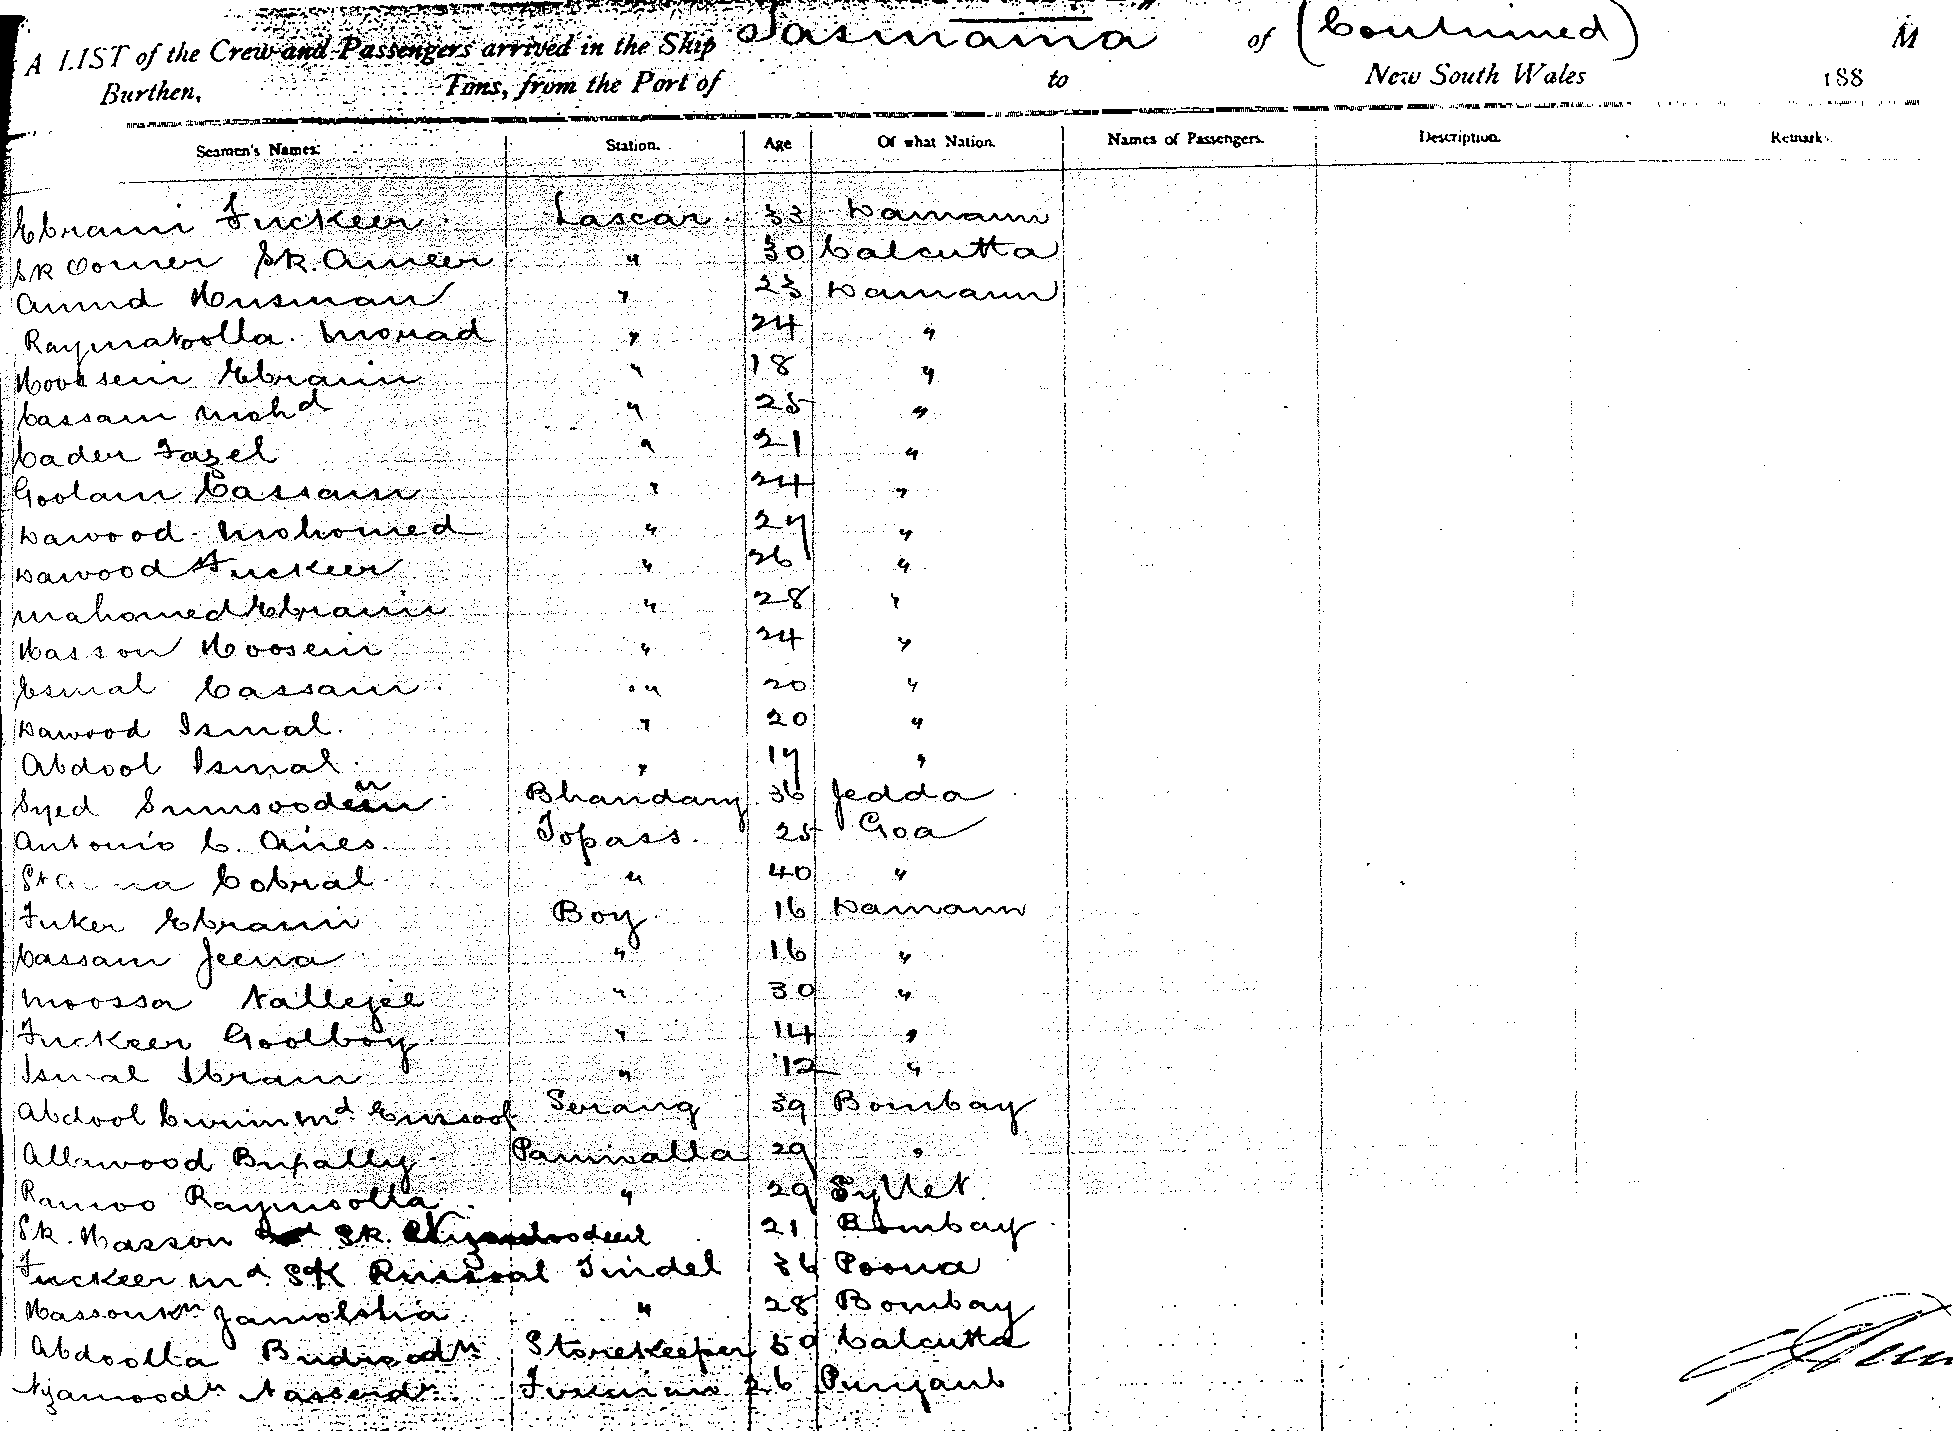 A LIST of the Crew and Passengers arrived in the Ship Tasmania of (Continued) M
Burthen, Tons, from the Port of to New South Wales 188
Seamen's Names. Station. Age Of what Nation. Names of Passengers. Description. Remark
Ebraim Fuckeer Lascar 33 Damaun
Sk Oomer Sk. Ameer " 30 Calcutta
Amud Husman " 23 Damaun
Raymatoolla Morad " 24 "
Hoossein Ebraim " 18 "
Cassam Mohd " 25 "
Cader Fazel " 21 "
Goolam Cassam " 24 "
Dawood Mohomed " 27 "
Dawood Fuckeer " 26 "
Mahomed Ebraim " 28 "
Hasson Hoosein " 24 "
Esmal Cassam " 20 "
Dawood Ismal " 20 "
Abdool Ismal " 17 "
Syed Sumsoodeen Bhandary 36 Jedda
Antonio C. Aires Topass 25 Goa
Cobral " 40 "
Fuker Ebraim Boy 16 Damaun
Cassam Jeena " 16 "
Moossa Nallejee " 30 "
Fuckeer Goolboy " 14 "
Ismal Ibram " 12 "
Abdool Curim Md Eusoof Serang 39 Bombay
Allawood Bupally Panivalla 29 "
Ramoo Raymsolla " 29 Syllet
Sk. Hasson Sk. 21 Bombay
Fuckeer Md Sk Russoal Tindel 36 Poona
Jamolsha " 28 Bombay
Abdoolla Budroodn Storekeeper 50 Calcutta
Nyamoodn Nasserdn Fireman 26 Punjaub